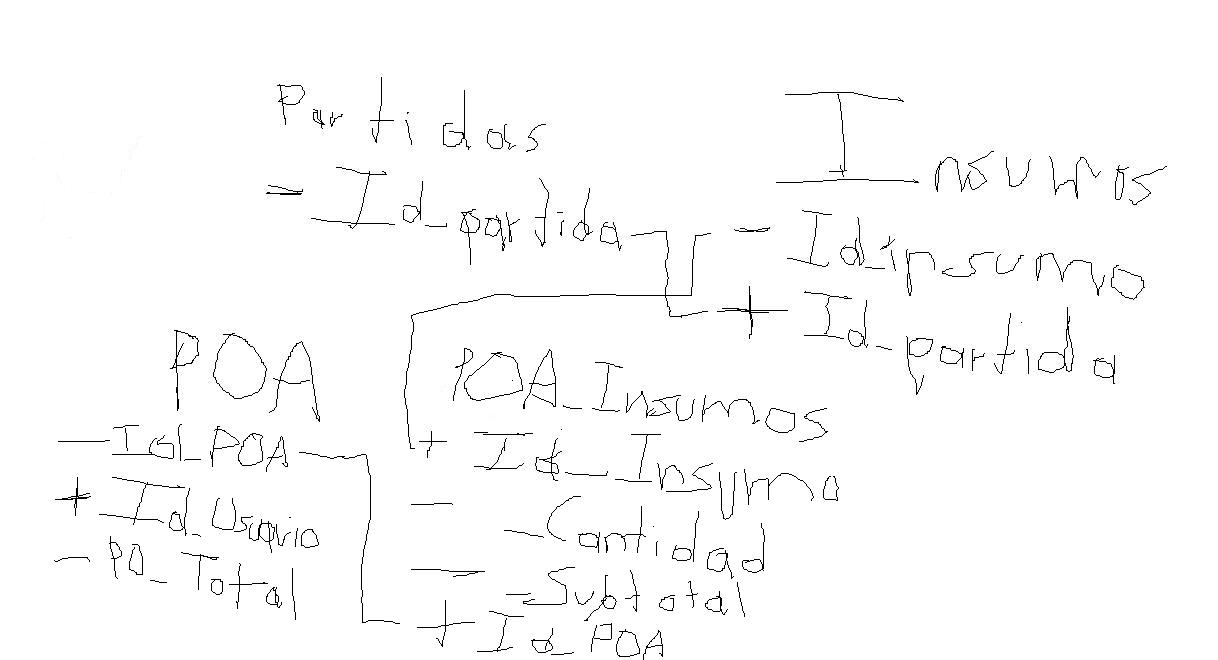 Partidas
- Id_partida
Insumos
- Id_insumo
+ Id_partida
POA
- Id_POA
+ Id_Usuario
- PO_Total
POA_Insumos
+ Id_Insumo
- _Cantidad
- _Subtotal
+ Id_POA